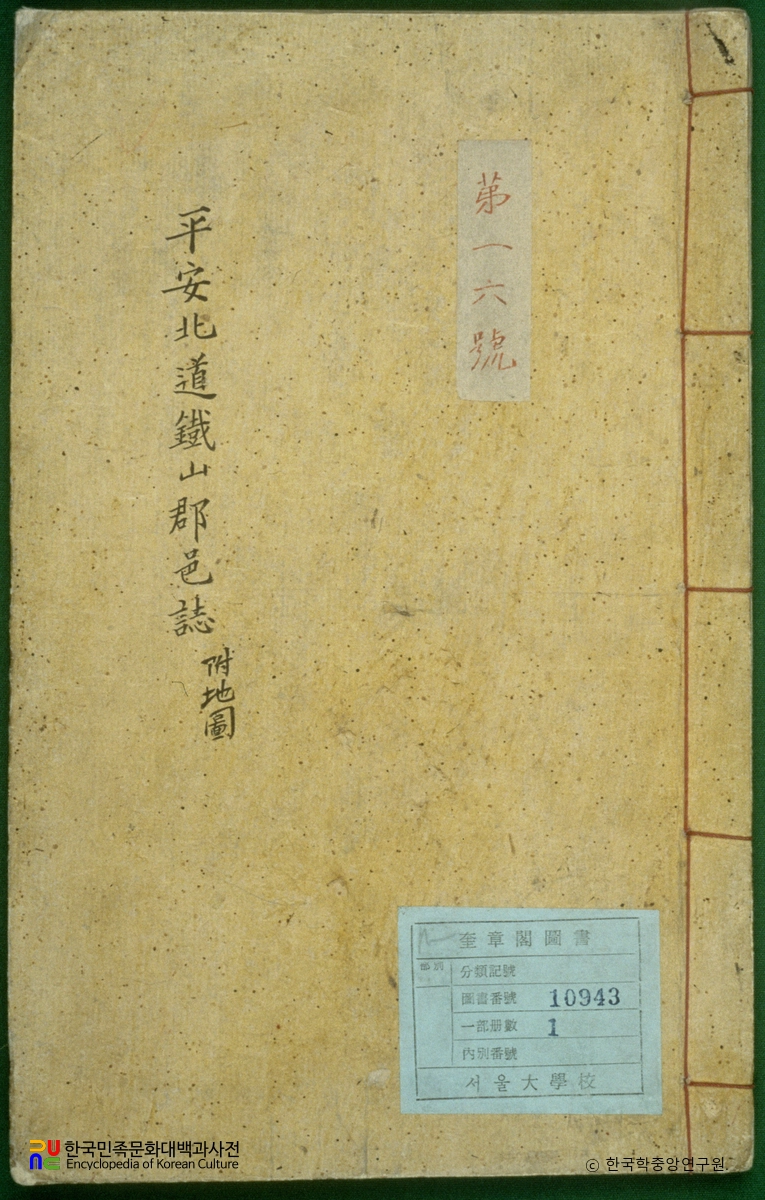 第一六號
平安北道鐵山郡邑誌
附地圖
奎章閣圖書
部別
分類記號
圖書番號 10943
一部冊數 1
內別番號
서울大學校
한국민족문화대백과사전
Encyclopedia of Korean Culture
© 한국학중앙연구원